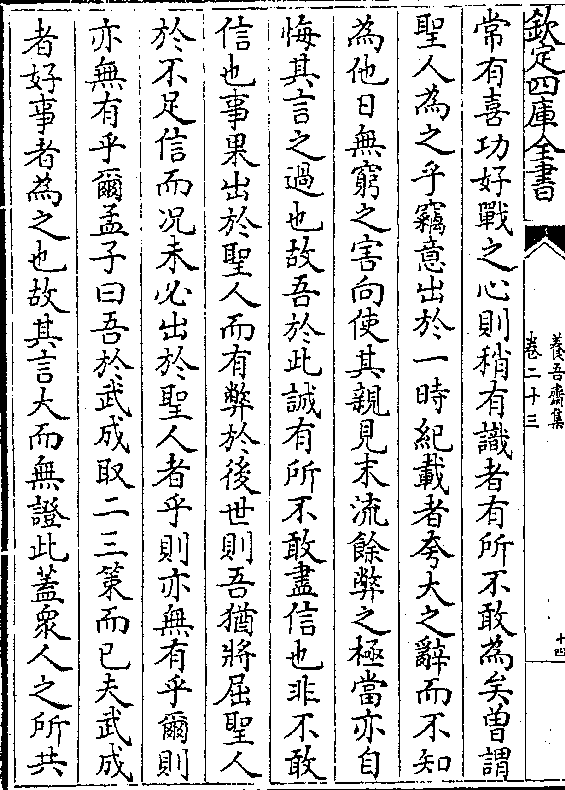 欽定四庫全書
養吾齋集
卷二十三
十四
常有喜功好戰之心則稍有識者有所不敢為矣曽謂
聖人為之乎竊意出於一時紀載者夸大之辭而不知
為他日無窮之害向使其親見末流餘弊之極當亦自
悔其言之過也故吾於此誠有所不敢盡信也非不敢
信也事果出於聖人而有弊於後世則吾猶將屈聖人
於不足信而况未必出於聖人者乎則亦無有乎爾則
亦無有乎爾孟子曰吾於武成取二三策而已夫武成
者好事者為之也故其言大而無證此蓋衆人之所共